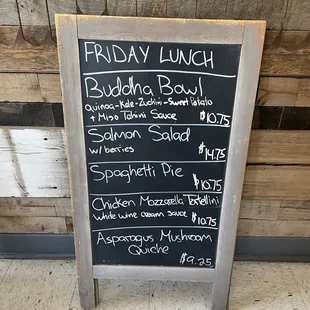 FRIDAY LUNCH
Buddha Bowl
quinoa-Kale-Zuchini-Sweet Potato
+ Miso Tahini Sauce $10.75
Salmon Salad
w/ berries $14.75
Spaghetti Pie
$10.75
Chicken Mozzarella Tortellini
white wine cream sauce $10.75
Asparagus, Mushroom
Quiche $9.25